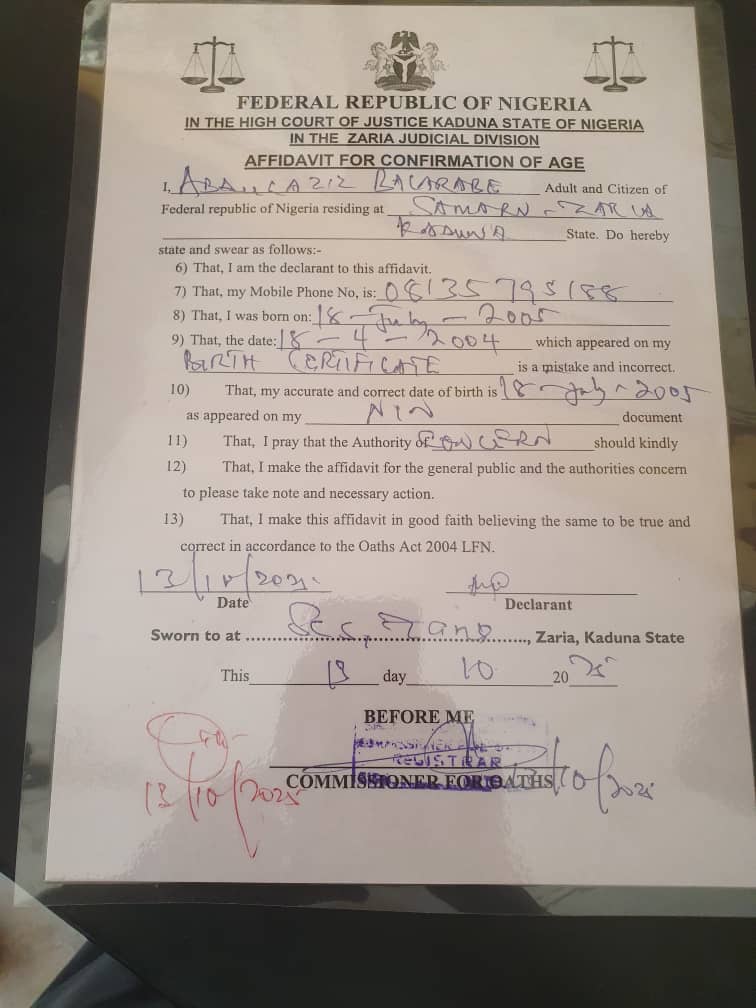 FEDERAL REPUBLIC OF NIGERIA
IN THE HIGH COURT OF JUSTICE KADUNA STATE OF NIGERIA
IN THE ZARIA JUDICIAL DIVISION
AFFIDAVIT FOR CONFIRMATION OF AGE
I, BALARABE Adult and Citizen of
Federal republic of Nigeria residing at SAMARU - ZARIA
KADUNA State. Do hereby
state and swear as follows:-
6) That, I am the declarant to this affidavit.
7) That, my Mobile Phone No, is: 08135795188
8) That, I was born on: 18 - July - 2005
9) That, the date: 18 - 4 - 2004 which appeared on my
BIRTH CERTIFICATE is a mistake and incorrect.
10) That, my accurate and correct date of birth is 18 - July - 2005
as appeared on my NIN document
11) That, I pray that the Authority of CONCERN should kindly
12) That, I make the affidavit for the general public and the authorities concern
to please take note and necessary action.
13) That, I make this affidavit in good faith believing the same to be true and
correct in accordance to the Oaths Act 2004 LFN.
13/10/2025
Date Declarant
Sworn to at ................., Zaria, Kaduna State
This 13 day 10 2025
BEFORE ME
REGISTRAR
COMMISSIONER FOR OATHS 13/10/2025
13/10/2025